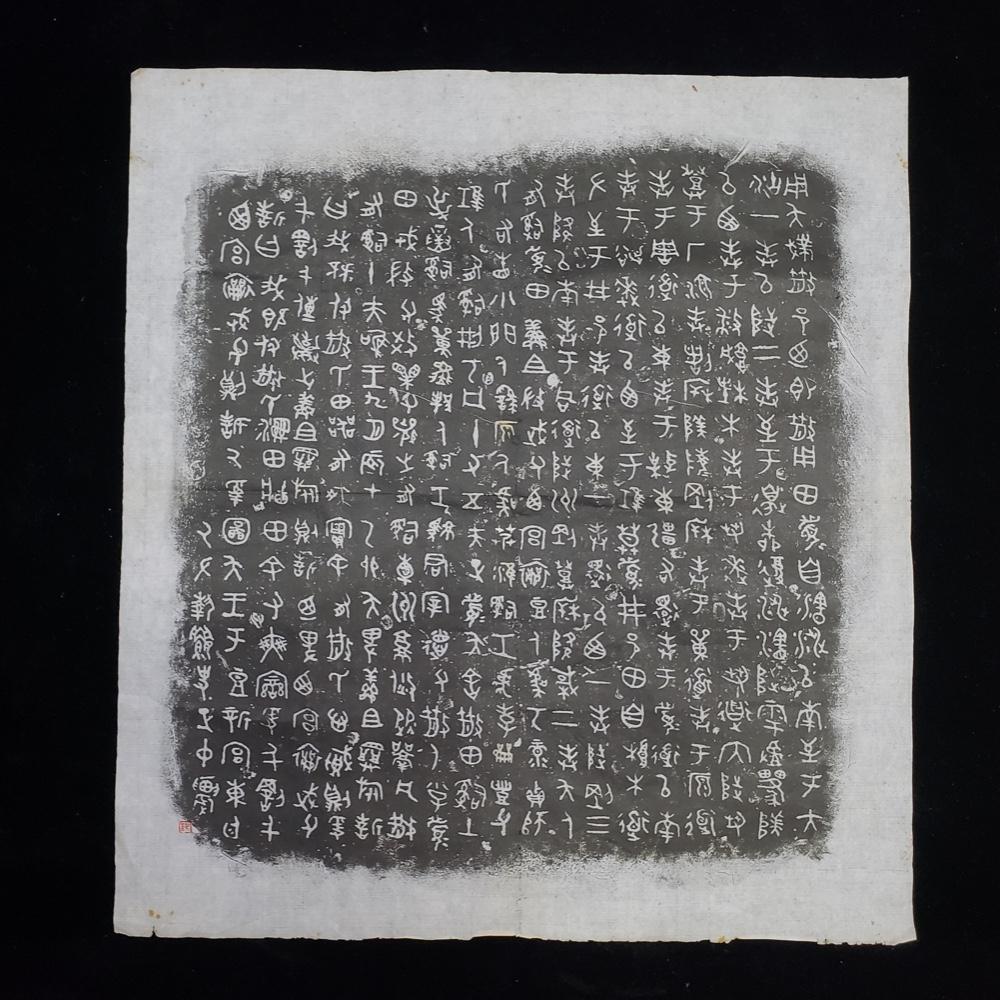 用夨散邑乃即散用田眉自瀗涉以南至于大
沽一封以陟二封至于邊柳復涉瀗陟雩陕
以西封于播城楮木封于芻逨封于芻道內陟芻
登于厂湶封剖柝陕陵剛柝封于道封于原道
封于周道以東封于東疆右還封于眉道以南
封于逨道以西至于堆莫眉井邑田自根木道
左至于井邑封道以東一封還以西一封陟剛三
封降以南封于同道陟州剛登柝降棫二封夨人
有司眉田鮮且微武父西宮襄豆人虞丂彔貞師
氏右眚小門人繇原人虞艿淮司工虎孝龠豐父
堆人有司刑丂凡十又五夫正眉夨舍散田司土
逆寅司馬單人司工君宰德父散人小子眉
田戎微父效父襄之有司橐州就焂從凡散
有司十夫唯王九月辰才乙卯夨卑鮮且旅誓
曰我既付散氏田器有爽實余有散氏心賊則爰
千罰千傳棄之鮮且旅則誓迺卑西宮襄武父
誓曰我既付散氏濕田畛田余有爽變爰千罰千
西宮襄武父則誓厥受圖夨王于豆新宮東廷
厥左執史正仲農